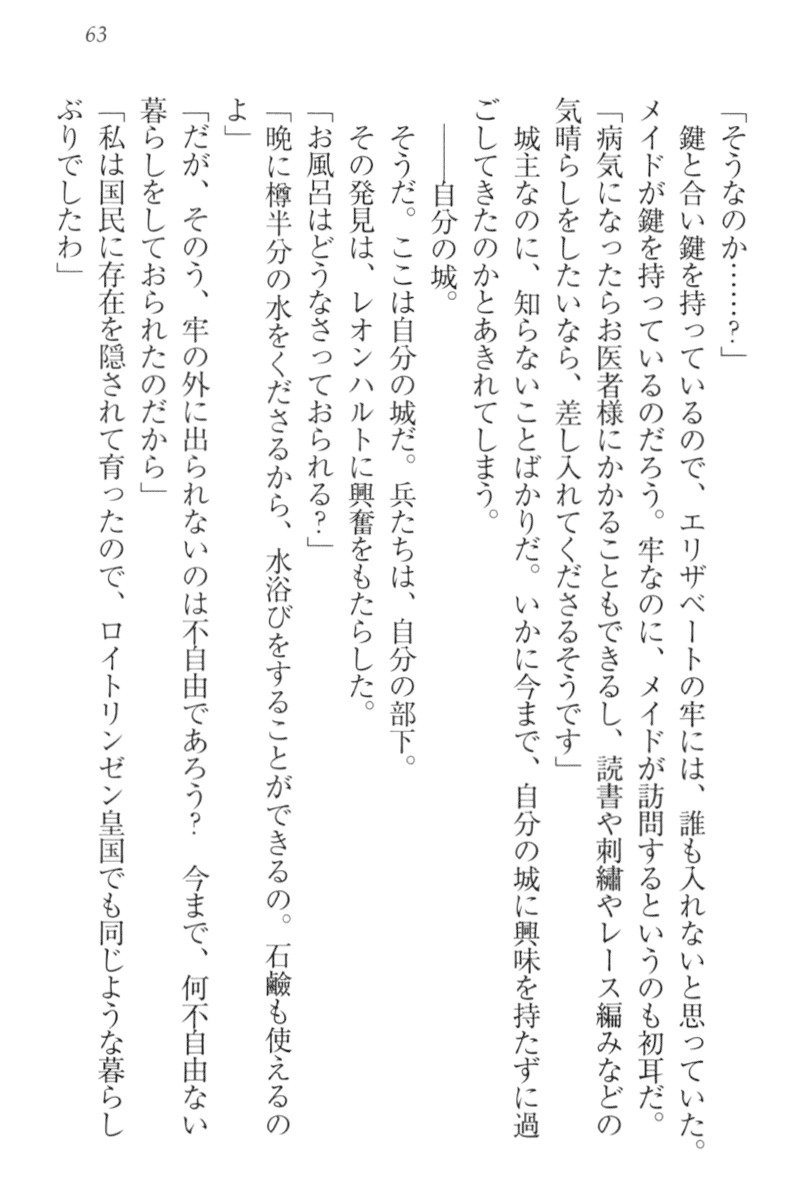 63
「そうなのか……？」
　鍵と合い鍵を持っているので、エリザベートの牢には、誰も入れないと思っていた。
メイドが鍵を持っているのだろう。牢なのに、メイドが訪問するというのも初耳だ。
「病気になったらお医者様にかかることもできるし、読書や刺繡やレース編みなどの
気晴らしをしたいなら、差し入れてくださるそうです」
　城主なのに、知らないことばかりだ。いかに今まで、自分の城に興味を持たずに過
ごしてきたのかとあきれてしまう。
　――自分の城。
　そうだ。ここは自分の城だ。兵たちは、自分の部下。
　その発見は、レオンハルトに興奮をもたらした。
「お風呂はどうなさっておられる？」
「晩に樽半分の水をくださるから、水浴びをすることができるの。石鹼も使えるの
よ」
「だが、そのう、牢の外に出られないのは不自由であろう？　今まで、何不自由ない
暮らしをしておられたのだから」
「私は国民に存在を隠されて育ったので、ロイトリンゼン皇国でも同じような暮らし
ぶりでしたわ」